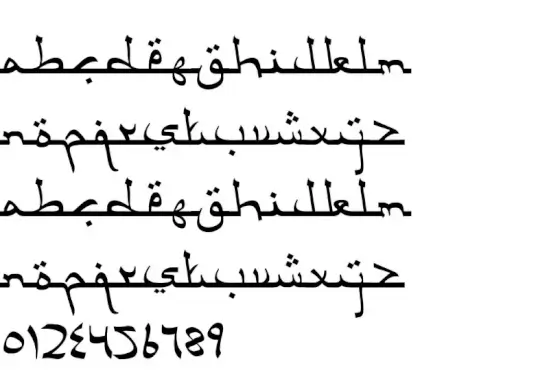 abcdefghijklm
nopqrstuvwxyz
abcdefghijklm
nopqrstuvwxyz
0123456789